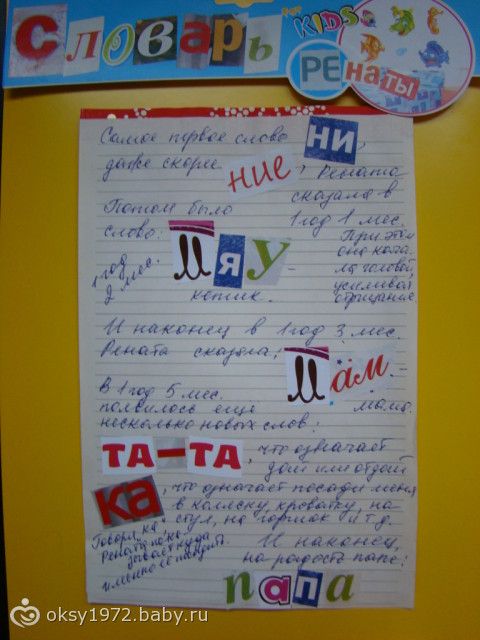 Словарь
for KIDS
РЕнаты
Самое первое слово НИ,
даже скорее ние, Рената
сказала в
1 год 1 мес.
При этом
она кача-
ла головой,
усиливая
отрицание
Потом было
слово:
Мяу -
1 год
2 мес.
котик.
И наконец в 1 год 3 мес.
Рената сказала: Мам. -
мама.
В 1 год 5 мес.
появилось ещё
несколько новых слов:
ТА-ТА, что означает
дай или отдай
КА, что означает посади меня
в коляску, кроватку, на
стул, на горшок и т.д.
Говоря "ка"
Рената пока-
зывает куда
именно её посадить.
И наконец,
на радость папе:
папа
oksy1972.baby.ru